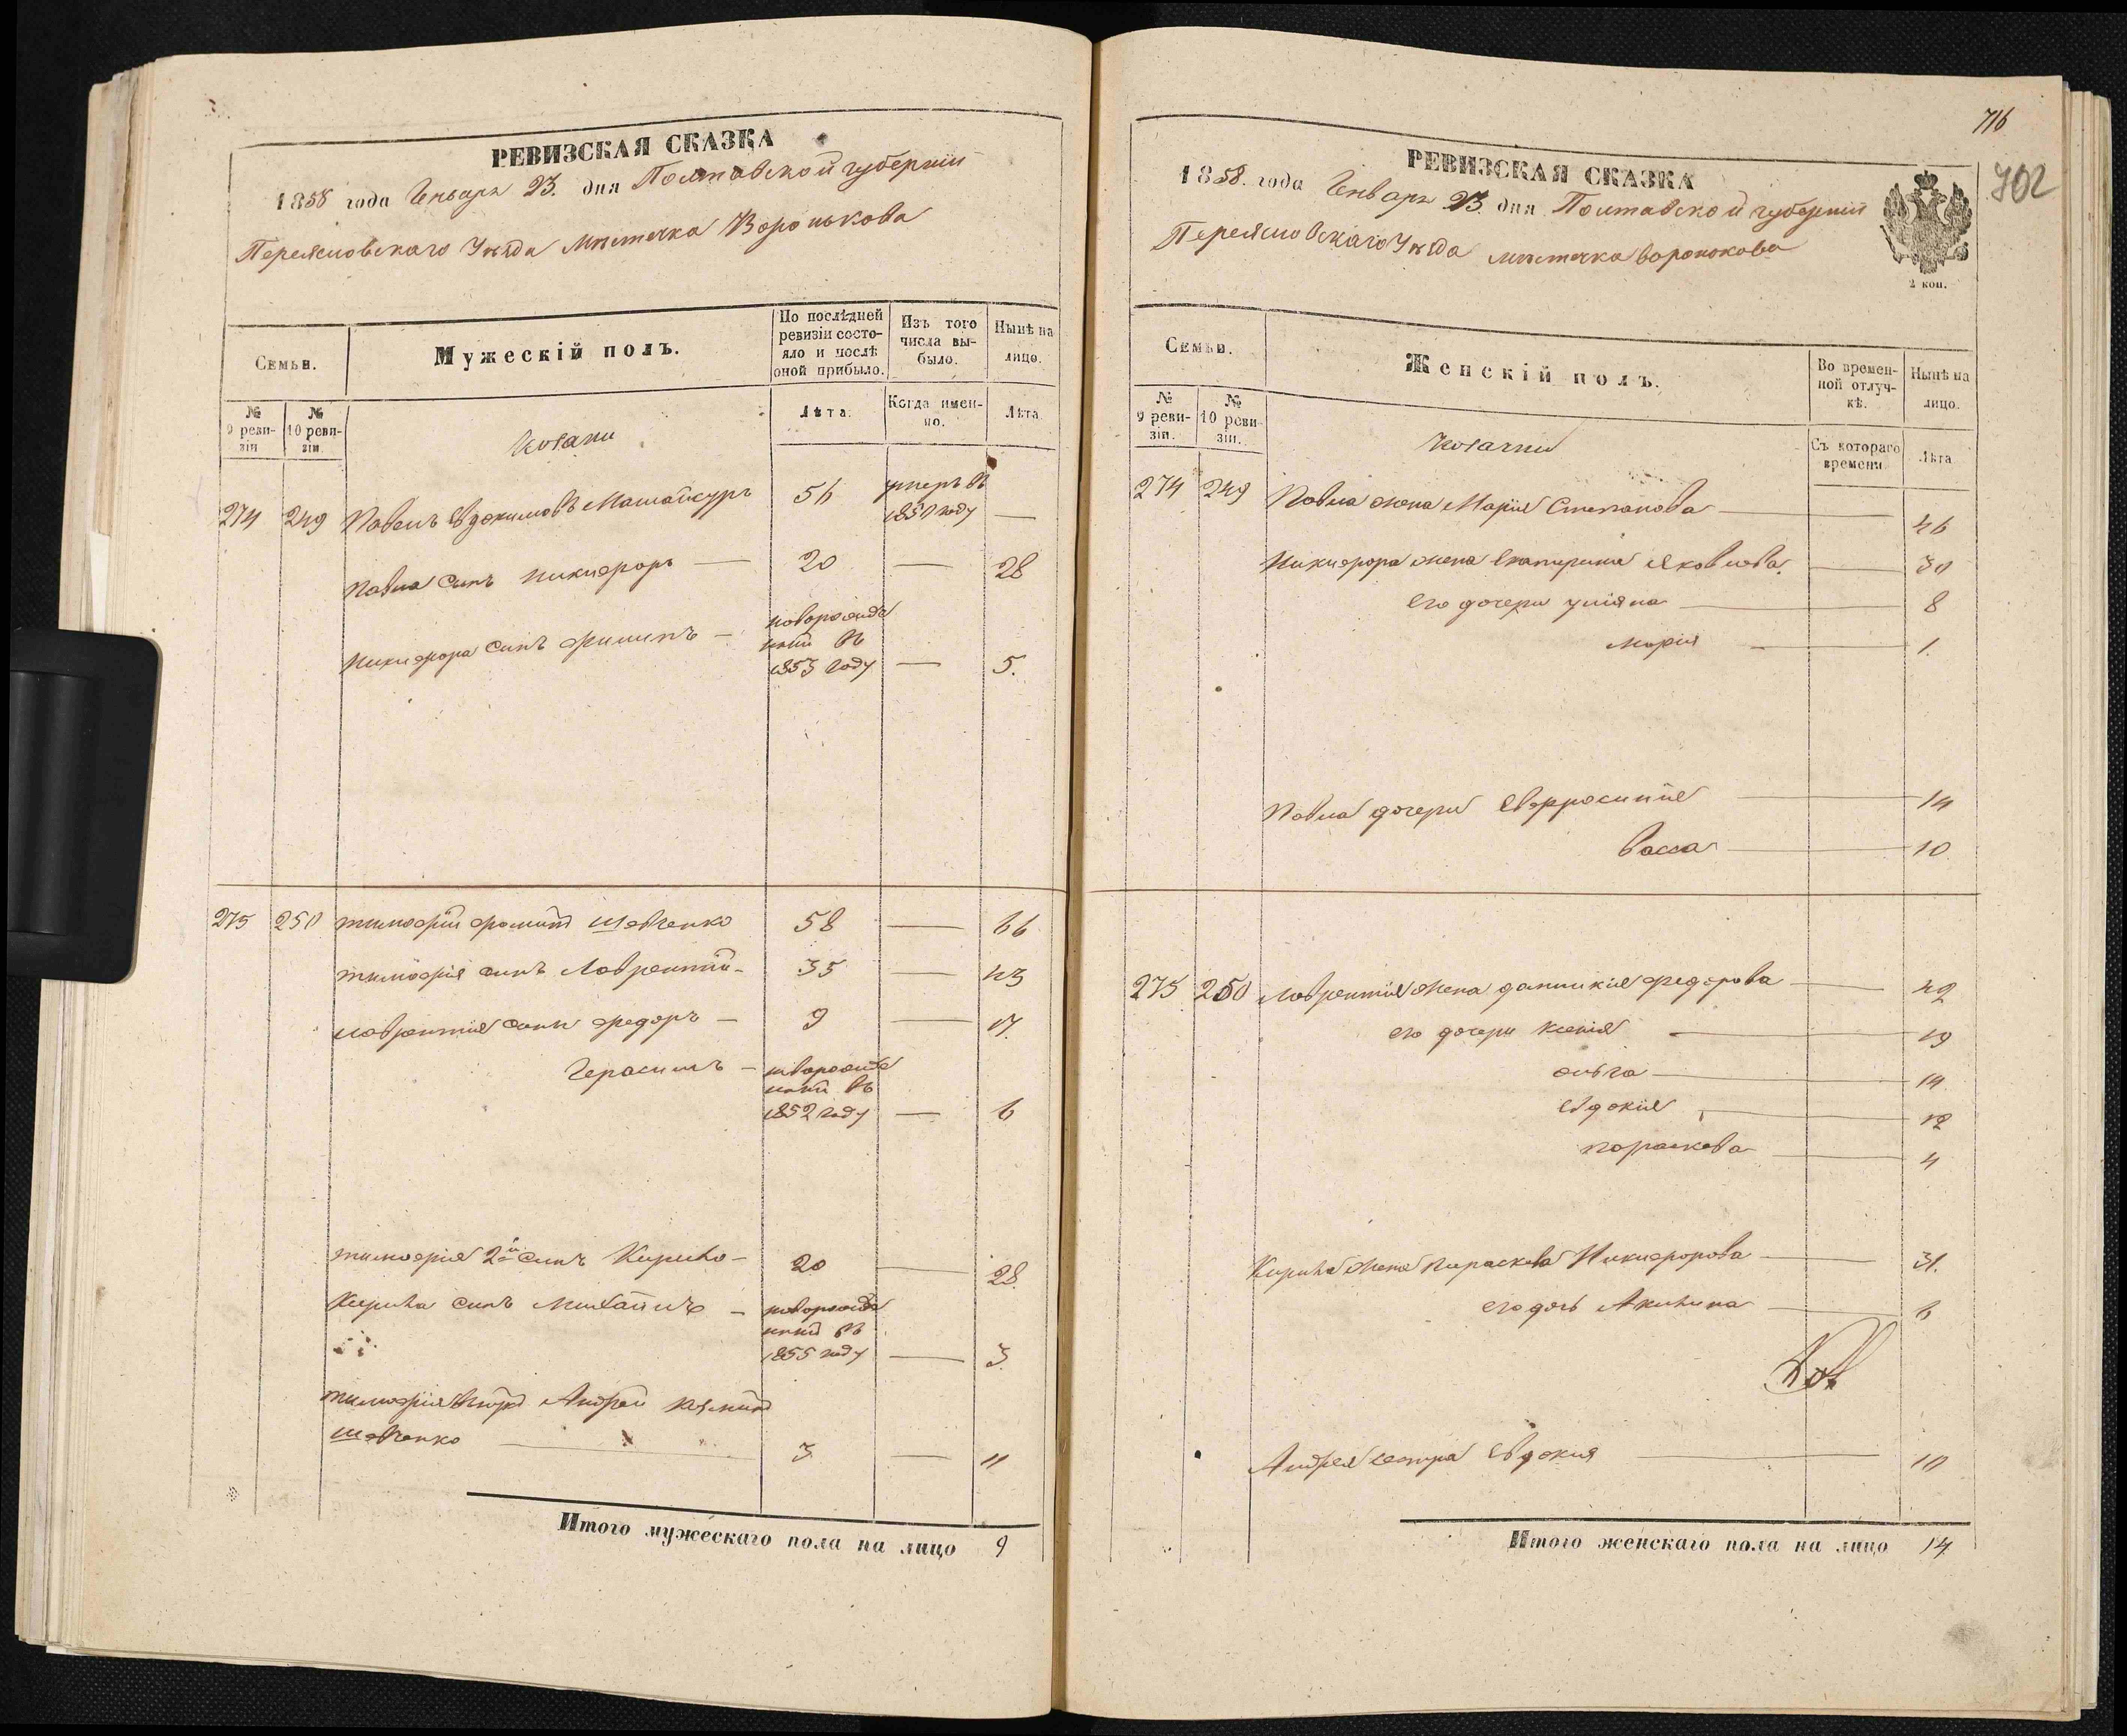 РЕВИЗСКАЯ СКАЗКА
1858 года Генваря 23. дня Полтавской губернии
Переясловскаго Уѣзда Мѣстечка Воронькова
Семьи.
Мужескій полъ.
По послѣдней ревизіи состояло и послѣ оной прибыло.
Изъ того числа выбыло.
Нынѣ на лицо.
№ 9 ревизіи
№ 10 ревизіи
Козаки
Лѣта.
Когда именно.
Лѣта
274 249 Павелъ Евдокимовъ 56 умеръ въ 1850 году —
Павла сынъ Никифоръ — 20 — 28
Никифора сынъ Филипъ — новорожденный въ 1853 году — 5.
275 250 Тимофѣй Шевченко 58 — 66
Тимофія сынъ Лаврентій — 35 — 43
Лаврентія сынъ Федоръ — 9 — 17.
Герасимъ — новорожденный въ 1852 году — 6
Тимофія 2й сынъ Кирило — 20 — 28.
Кирила сынъ Михаилъ — новорожденный въ 1855 году — 3.
Тимофія Андрей
Шевченко — 3 — 11
Итого мужескаго пола на лицо 9
716
702
РЕВИЗСКАЯ СКАЗКА
1858. года Генваря 23 дня Полтавской губерніи
Переясловскаго Уѣзда мѣстечка Воронькова
2 коп.
Семьи.
Женскій полъ.
Во временной отлучкѣ.
Нынѣ на лицо.
№ 9 ревизіи.
№ 10 ревизіи.
Козачки
Съ котораго времени
Лѣта
274 249 Павла жена Марія Степанова — 46
Никифора жена Екатерина Яковлева — 30
Его дочери Уліяна — 8
Марія — 1.
Павла дочери Евфросинія — 14
Васса — 10
275 250 Лаврентія жена Федорова — 42
его дочери Ксенія — 19
Ольга — 14
Евдокія — 12
Параскева — 4
Кирила жена Параскева Никифорова — 31.
его дочь Акилина — 6
Андрея сестра Евдокия — 10
Итого женскаго пола на лицо 14